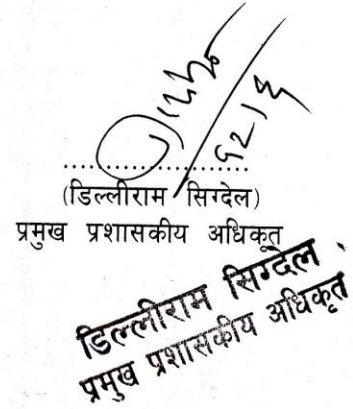 ....................
(डिल्लीराम सिग्देल)
प्रमुख प्रशासकीय अधिकृत
डिल्लीराम सिग्देल
प्रमुख प्रशासकीय अधिकृत